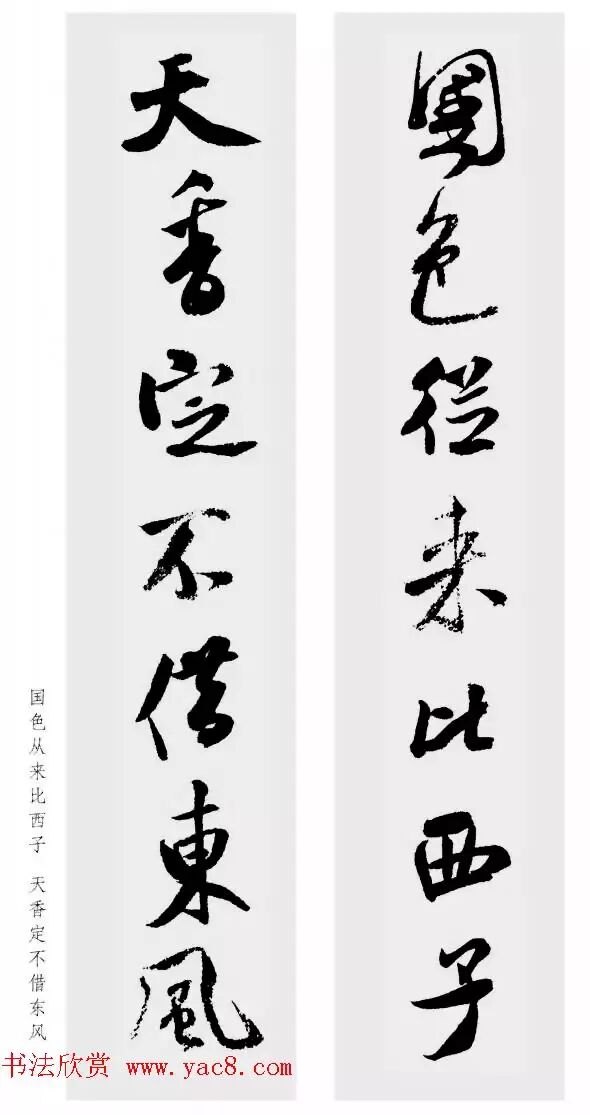 國色從来比西子
天香定不借東風
国色从来比西子 天香定不借东风
书法欣赏 www.yac8.com